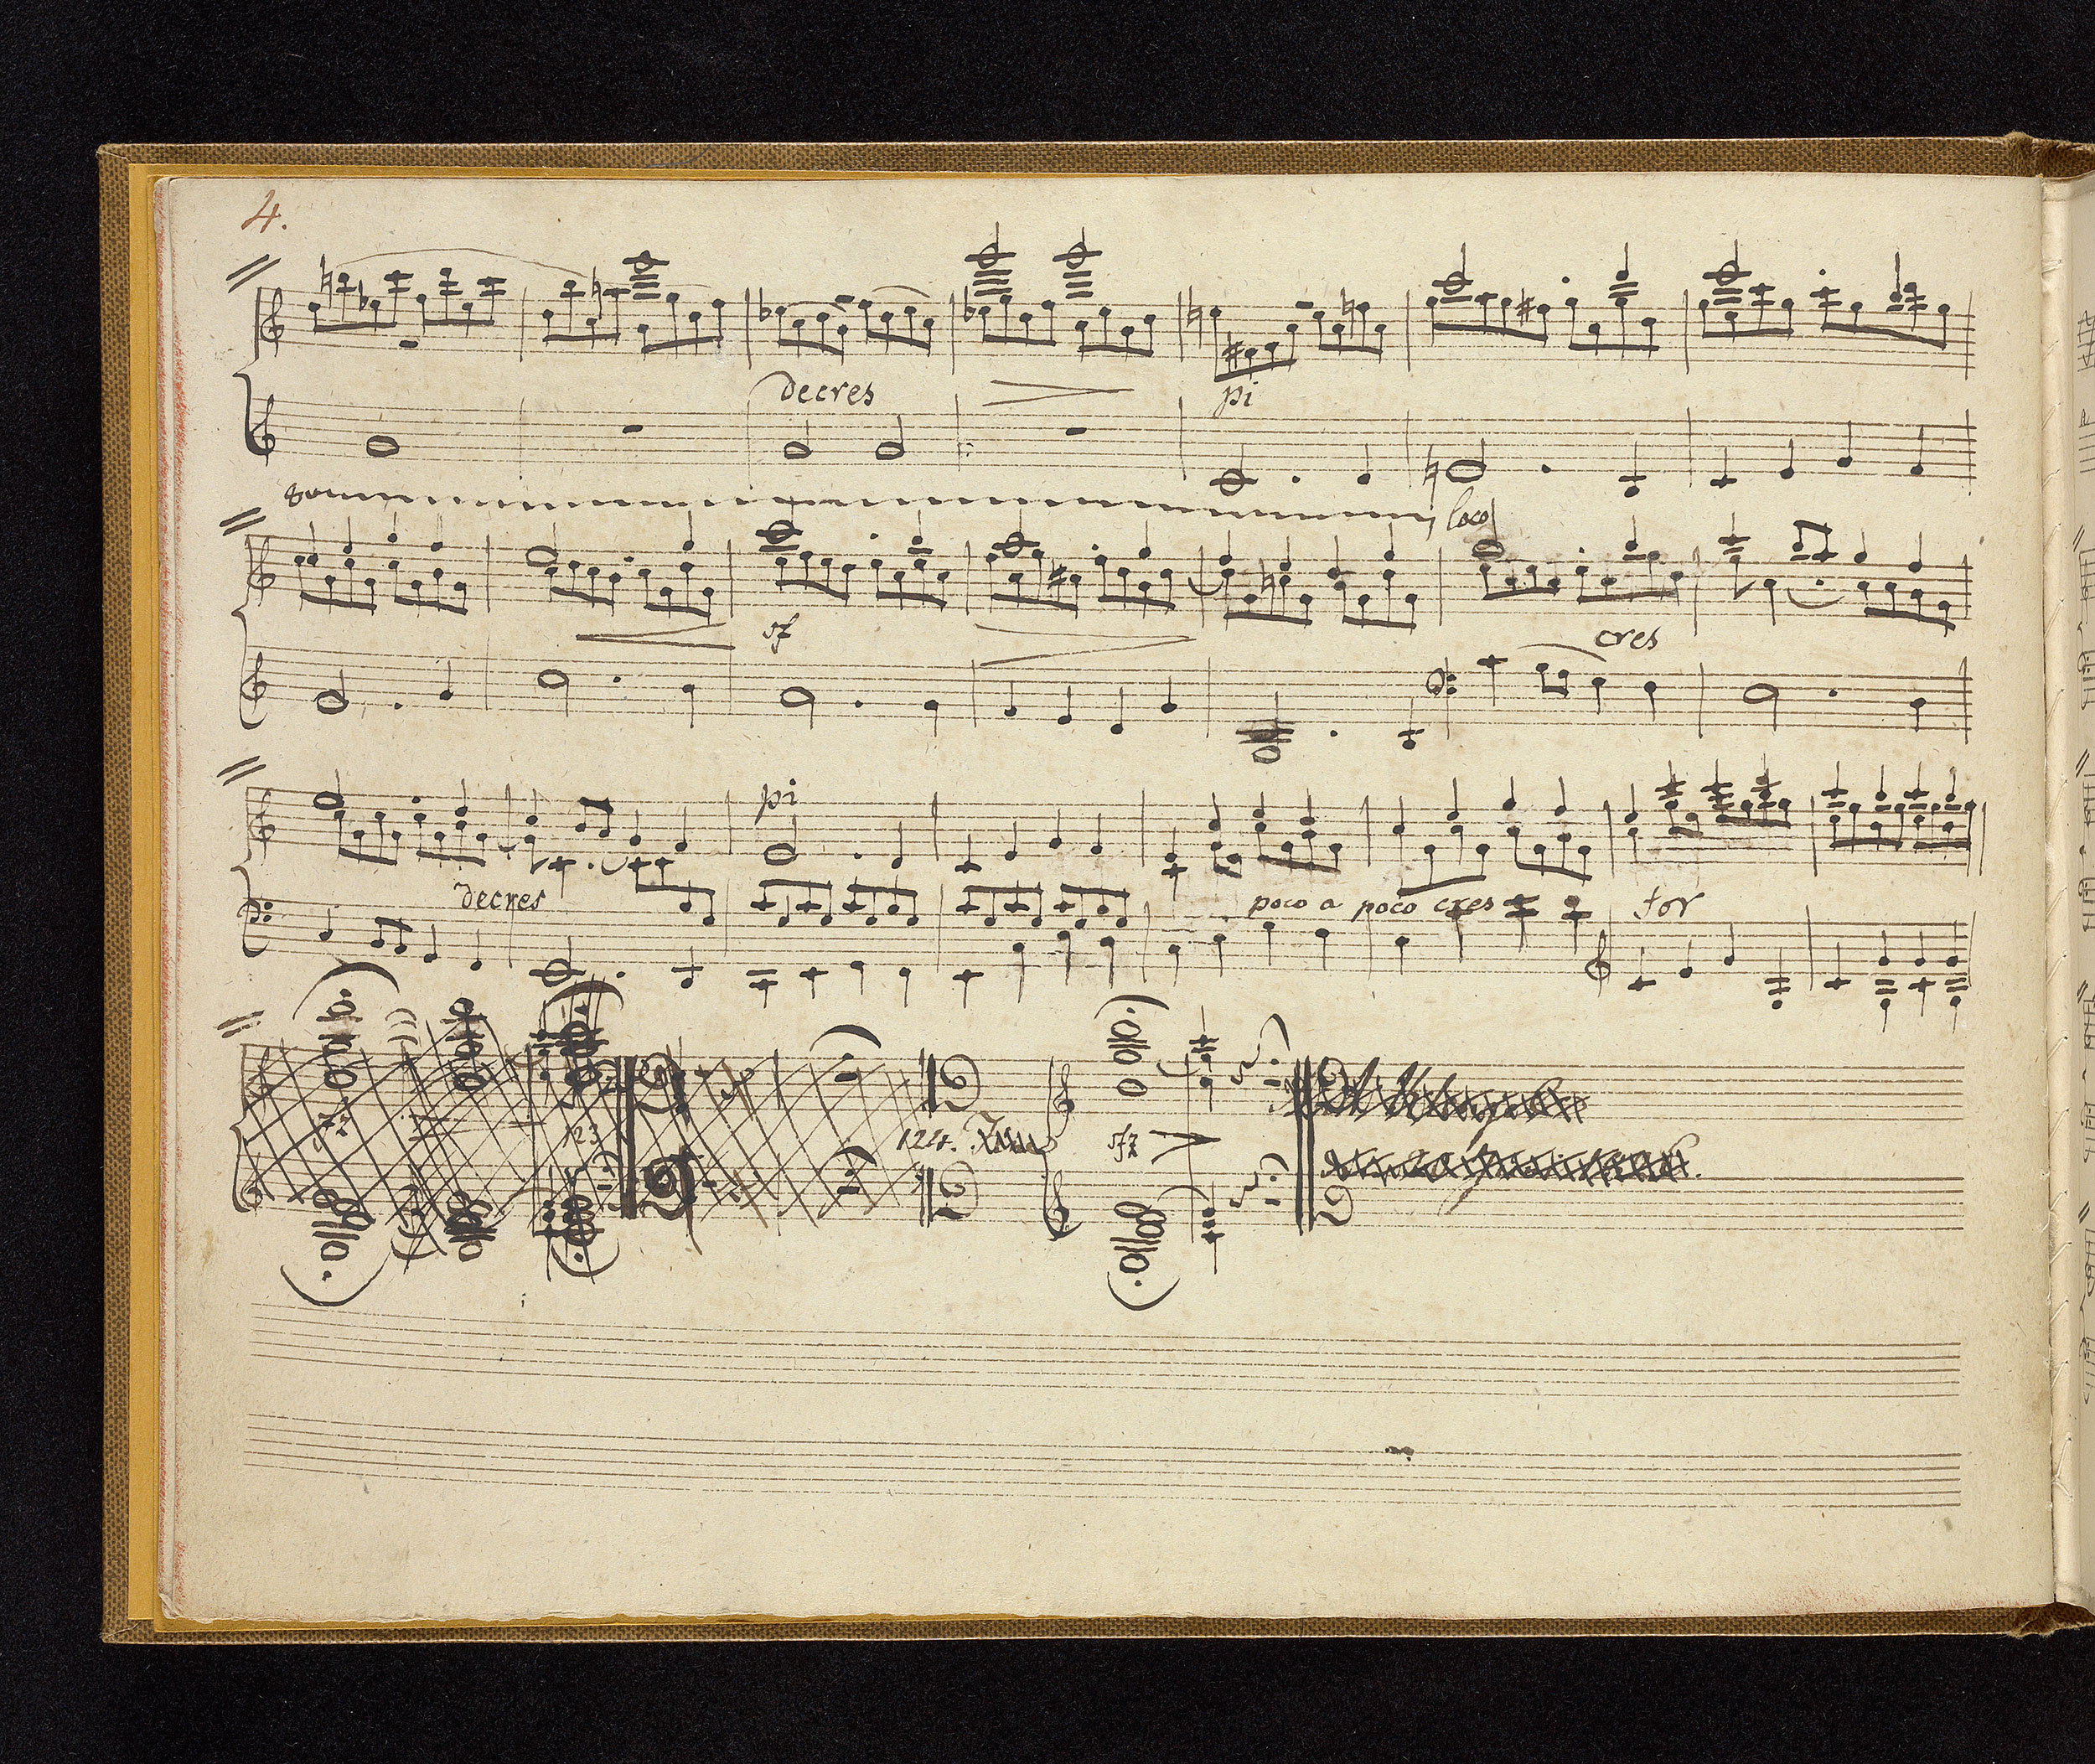 4.
decres
pi
8va
loco
sf
cres
pi
decres
poco a poco cres
for
123
124.
sfz